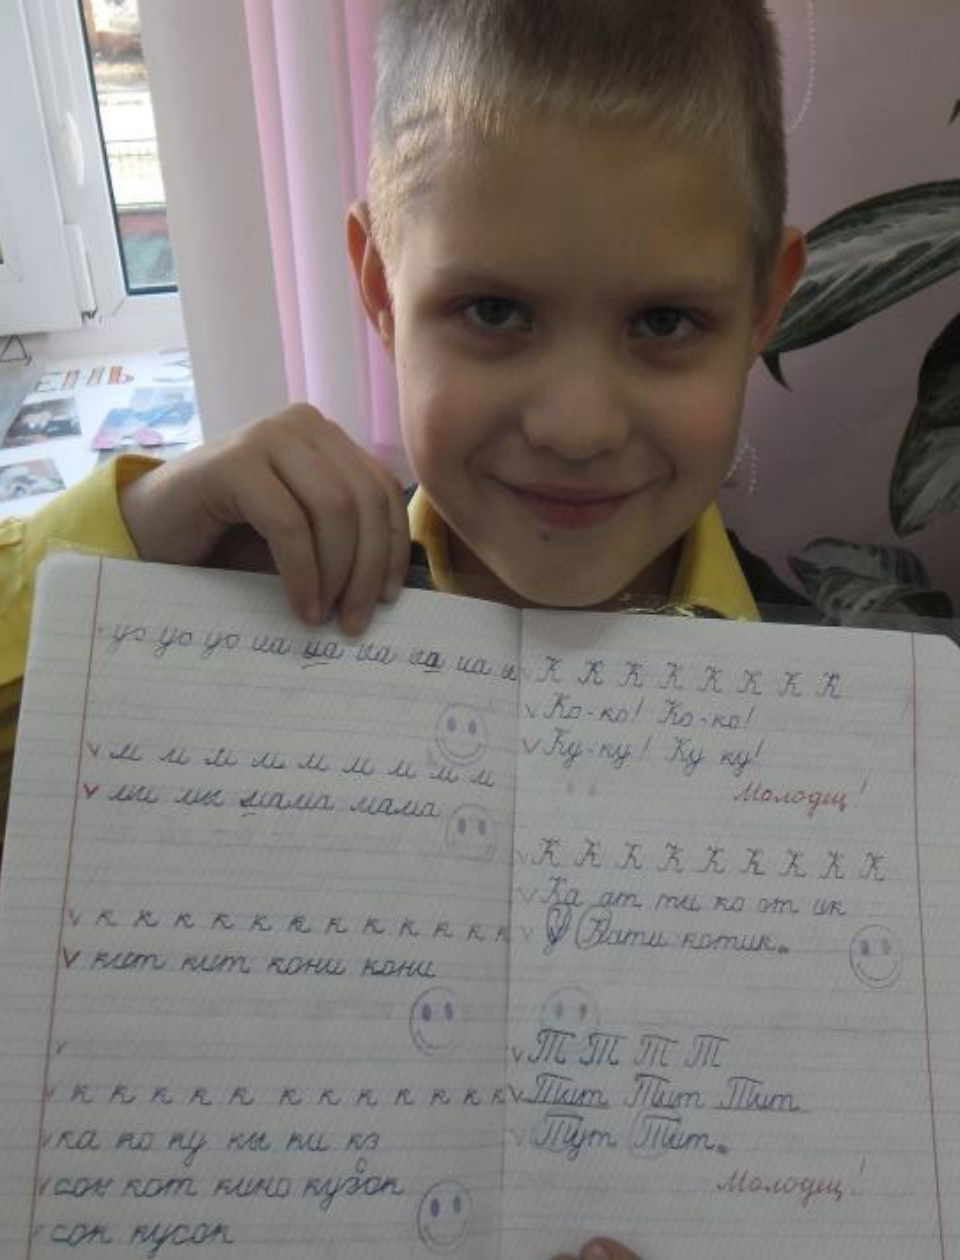 ЕНЬ
уо уо уо иа иа иа иа иа и
м м м м м м м м м
мы мы мама мама
к к к к к к к к к к к
кит кит кони кони
к к к к к к к к к к к к
ка ко ку кы ки кэ
сок кот кино кузов
сок кусок
К К К К К К К К
Ко-ко! Ко-ко!
Ку-ку! Ку ку!
Молодец!
К К К К К К К К К
Ка ат ти ко от ик
У Кати котик.
Т Т Т Т
Тит Тит Тит
Тут Тит.
Молодец!